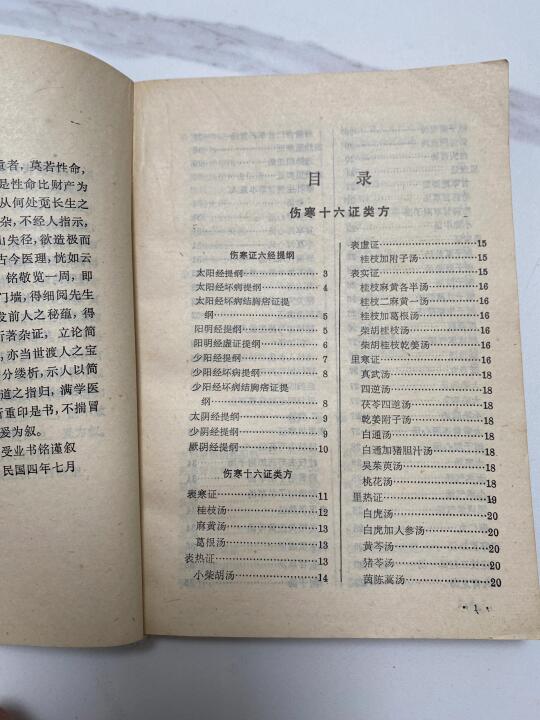 重者，莫若性命，
是性命比财产为
从何处觅长生之
杂，不经人指示，
山失径，欲造极而
古今医理，恍如云
铭敬览一周，即
门墙，得细阅先生
发前人之秘蕴，得
所著杂证，立论简
亦当世渡人之宝
分缕析，示人以简
道之指归，满学医
重印是书，不揣冒
爰为叙。
受业书铭谨叙
民国四年七月
目 录
伤寒十六证类方
伤寒证六经提纲
太阳经提纲……3
太阳经坏病提纲……4
太阳经坏病结胸痞证提
纲……5
阳明经提纲……6
阳明经虚证提纲……6
少阳经提纲……7
少阳经坏病提纲……8
少阳经坏病结胸痞证提
纲……8
太阴经提纲……9
少阴经提纲……9
厥阴经提纲……10
伤寒十六证类方
表寒证……11
桂枝汤……12
麻黄汤……13
葛根汤……13
表热证……13
小柴胡汤……14
表虚证……15
桂枝加附子汤……15
表实证……15
桂枝麻黄各半汤……16
桂枝二麻黄一汤……16
桂枝加葛根汤……16
柴胡桂枝汤……16
柴胡桂枝乾姜汤……16
里寒证……17
真武汤……18
四逆汤……18
茯苓四逆汤……18
乾姜附子汤……18
白通汤……18
白通加猪胆汁汤……18
吴茱萸汤……18
桃花汤……18
里热证……19
白虎汤……20
白虎加人参汤……20
黄芩汤……20
猪苓汤……20
茵陈蒿汤……20
1